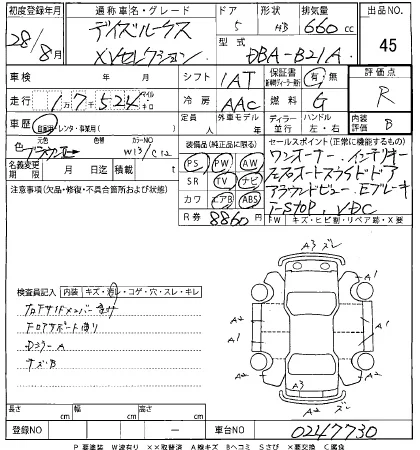 初度登録年月 通称車名・グレード ドア 形状 排気量 出品NO.
28年 8月 デイズルークス XVセレクション 5 HB 660cc 45
型式 DBA-B21A
車検 年 月 シフト 1AT 保証書 有・無 評価点
走行 1 7 5 2 4 マイル キロ 冷房 AAC 燃料 G R
車歴 自家用・レンタ・事業用( ) 定員 人 外車モデル 年 ディーラー 並行 ハンドル 左・右 内装評価 B
色 元色 カラーNO
ブラウン W13/C12
名義変更期限 月 日迄 積載 t
装備品(純正品に限る)
PS PW AW
SR TV ナビ
カワ エアB ABS
R券 8860円
セールスポイント(正常に機能するもの)
ワンオーナー インテリキー
両側オートスライドドア
アラウンドビュー Eブレーキ
i-STOP VDC
FW キズ・ヒビ割・リペア跡・X要
注意事項(欠品・修復・不具合箇所および状態)
検査員記入 内装 キズ・汚レ・コゲ・穴・スレ・キレ
フロアサポート曲り
Dミラー A
キズB
A3 ズレ
A1
A2
A1
A2
A2
A3
ズレ
長さ cm 幅 cm 高さ cm
登録NO 車台NO 0247730
P 要塗装 W波有り XX取替済 A線キズ Bヘコミ Sさび X要交換 C腐食